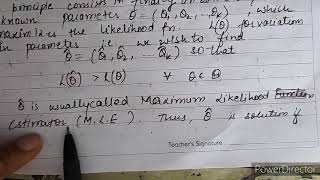 principle consists in finding an
known parameter θ = (θ1, θ2, ... θk), which
maximizes the likelihood fn. L(θ) for variations
in parameter i.e. we wish to find
θ̂ = (θ̂1, θ̂2, ... θ̂k) so that
L(θ̂) > L(θ) ∀ θ ∈ Θ
θ̂ is usually called Maximum Likelihood
Estimator (M.L.E). Thus, θ̂ is solution if
Teacher's Signature
PowerDirector